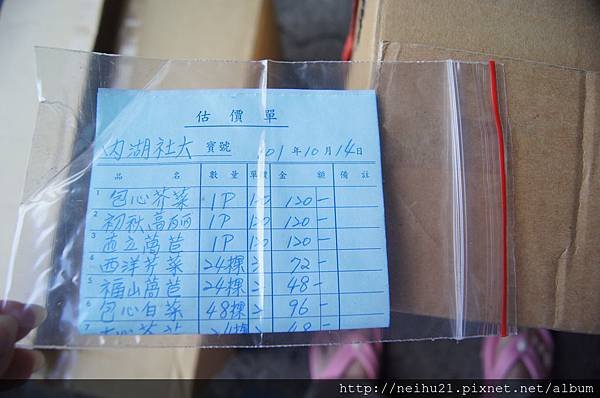 估價單
內湖社大 寶號 101年10月14日
品名 數量 單價 金額 備註
1 包心芥菜 1P 120 120-
2 初秋高丽 1P 120 120-
3 直立萵苣 1P 120 120-
4 西洋芥菜 24棵 3 72-
5 福山萵苣 24棵 2 48-
6 包心白菜 48棵 2 96-
7
http://neihu21.pixnet.net/album